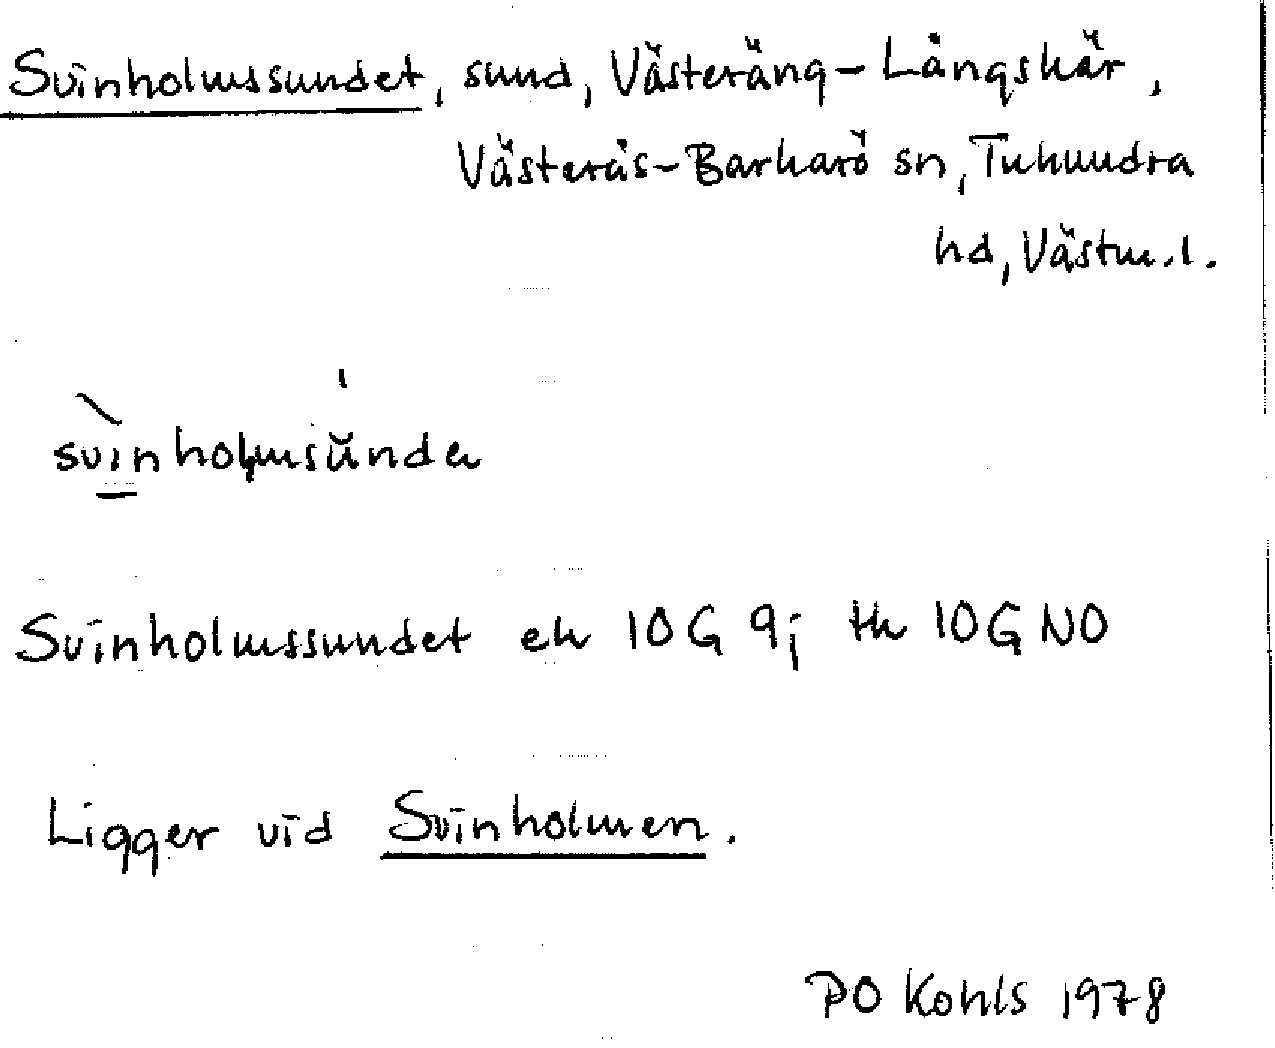 Svinholmssundet, sund, Västeräng - Långskär,
Västerås-Barkarö sn, Tuhundra
hd, Västm. l.
Svinholmssundet ek 10G 9i tk 10G NO
Ligger vid Svinholmen.
PO Kohls 1978